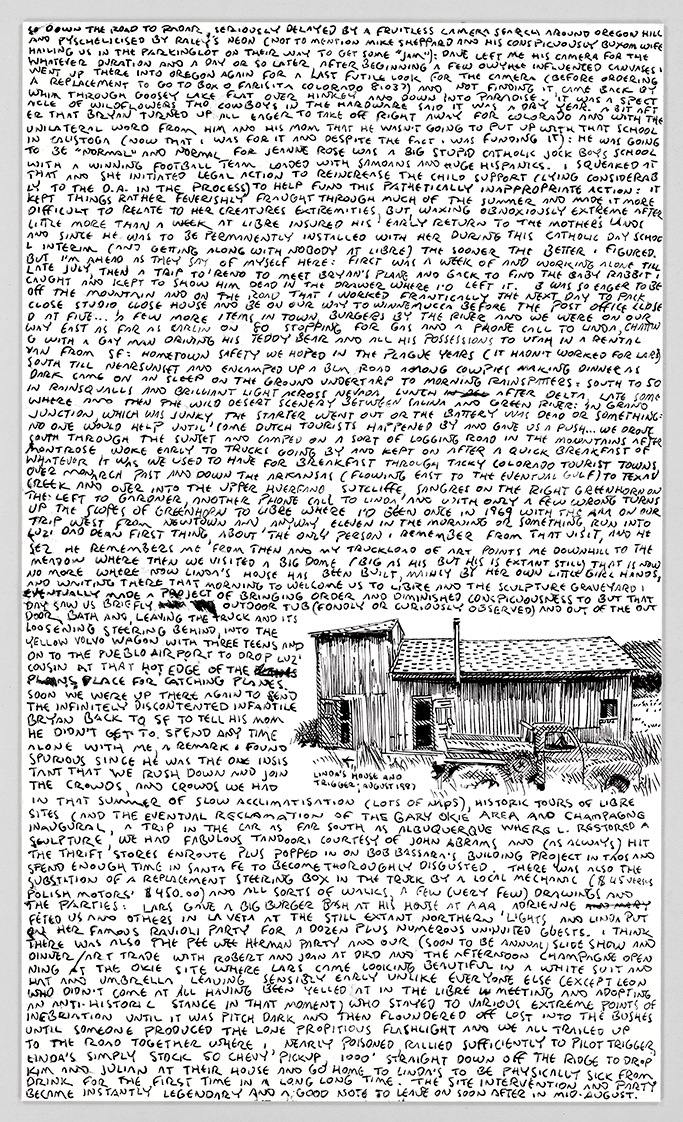 SO DOWN THE ROAD TO RADAR, SERIOUSLY DELAYED BY A FRUITLESS CAMERA SEARCH AROUND OREGON HILL
AND PYSCHELICISED BY RALEY'S NEON (NOT TO MENTION MIKE SHEPPARD AND HIS CONSPICUOUSLY BUXOM WIFE
HAILING US IN THE PARKINGLOT ON THEIR WAY TO GET SOME "JAM"): DAVE LEFT ME HIS CAMERA FOR THE
WHATEVER DURATION AND A DAY OR SO LATER, AFTER BEGINNING A FEW OWYHEE INFLUENCED CANVASES I
WENT UP THERE INTO OREGON AGAIN FOR A LAST FUTILE LOOK FOR THE CAMERA (BEFORE ORDERING
A REPLACEMENT TO GO TO BOX 0 FARISITA COLORADO 81037) AND NOT FINDING IT, CAME BACK BY
WHIM THROUGH GOOSEY LAKE FLAT OVER HINKEY AND DOWN INTO PARADISE: IT WAS A SPECT
ACLE OF WILDFLOWERS THO COWBOYS IN THE HARDWARE SAID IT WAS A DRY YEAR. A BIT AFT
ER THAT BRYAN TURNED UP ALL EAGER TO TAKE OFF RIGHT AWAY FOR COLORADO AND WITH THE
UNILATERAL WORD FROM HIM AND HIS MOM THAT HE WASN'T GOING TO PUT UP WITH THAT SCHOOL
IN CALISTOGA (NOW THAT I WAS FOR IT AND DESPITE THE FACT I WAS FUNDING IT): HE WAS GOING
TO BE "NORMAL" AND NORMAL FOR JEANNE ROSE WAS A BIG STUPID CATHOLIC JOCK BOYS SCHOOL
WITH A WINNING FOOTBALL TEAM LOADED WITH SAMOANS AND HUGE HISPANICS. I SQUEAKED AT
THAT AND SHE INITIATED LEGAL ACTION TO REINCREASE THE CHILD SUPPORT (LYING CONSIDERAB
LY TO THE D.A. IN THE PROCESS) TO HELP FUND THIS PATHETICALLY INAPPROPRIATE ACTION: IT
KEPT THINGS RATHER FEVERISHLY FRAUGHT THROUGH MUCH OF THE SUMMER AND MADE IT MORE
DIFFICULT TO RELATE TO HER CREATURES EXTREMITIES, BUT, WAXING OBNOXIOUSLY EXTREME AFTER
LITTLE MORE THAN A WEEK AT LIBRE INSURED HIS EARLY RETURN TO THE MOTHER'S LANDS
AND SINCE HE WAS TO BE PERMANENTLY INSTALLED WITH HER DURING THIS CATHOLIC DAY SCHOO
L INTERIM (AND GETTING ALONG WITH NOBODY AT LIBRE) THE SOONER THE BETTER I FIGURED.
BUT I'M AHEAD AS THEY SAY OF MYSELF HERE: FIRST WAS A WEEK OF AND WORKING ALONE TILL
LATE JULY, THEN A TRIP TO RENO TO MEET BRYAN'S PLANE AND BACK TO FIND THE BABY RABBIT I
CAUGHT AND KEPT TO SHOW HIM DEAD IN THE DRAWER WHERE I'D LEFT IT. B WAS SO EAGER TO BE
OFF THE MOUNTAIN AND ON THE ROAD THAT I WORKED FRANTICALLY THE NEXT DAY TO PACK
CLOSE STUDIO CLOSE HOUSE AND BE ON OUR WAY TO WINNEMUCCA BEFORE THE POST OFFICE CLOSE
D AT FIVE... A FEW MORE ITEMS IN TOWN, BURGERS BY THE RIVER AND WE WERE ON OUR
WAY EAST AS FAR AS CARLIN ON 80 STOPPING FOR GAS AND A PHONE CALL TO LINDA, CHATTIN
G WITH A GAY MAN DRIVING HIS TEDDY BEAR AND ALL HIS POSSESSIONS TO UTAH IN A RENTAL
VAN FROM SF: HOMETOWN SAFETY WE HOPED IN THE PLAGUE YEARS (IT HADN'T WORKED FOR LARD)
SOUTH TILL NEARSUNSET AND ENCAMPED UP A BLM ROAD AMONG COWPIES MAKING DINNER AS
DARK CAME ON AN SLEEP ON THE GROUND UNDERTARP TO MORNING RAINSPATTERS: SOUTH TO 50
IN RAINSQUALLS AND BRILLIANT LIGHT ACROSS NEVADA, LUNCH AFTER DELTA, LATE SOME
WHERE AND THEN THE WILD DESERT SCENERY BETWEEN SALINA AND GREEN RIVER: IN GRAND
JUNCTION, WHICH WAS JUNKY, THE STARTER WENT OUT OR THE BATTERY WAS DEAD OR SOMETHING:
NO ONE WOULD HELP UNTIL SOME DUTCH TOURISTS HAPPENED BY AND GAVE US A PUSH... WE DROVE
SOUTH THROUGH THE SUNSET AND CAMPED ON A SORT OF LOGGING ROAD IN THE MOUNTAINS AFTER
MONTROSE WOKE EARLY TO TRUCKS GOING BY AND KEPT ON AFTER A QUICK BREAKFAST OF
WHATEVER IT WAS WE USED TO HAVE FOR BREAKFAST THROUGH TACKY COLORADO TOURIST TOWNS
OVER MONARCH PAST AND DOWN THE ARKANSAS (FLOWING EAST TO THE EVENTUAL GULF) TO TEXAS
CREEK AND OVER INTO THE UPPER HUERFANO SUTCLIFFE, SANGRES ON THE RIGHT GREENHORN ON
THE LEFT TO GARDNER, ANOTHER PHONE CALL TO LINDA AND WITH ONLY A FEW WRONG TURNS
UP THE SLOPES OF GREENHORN TO LIBRE WHERE I'D BEEN ONCE IN 1969 WITH THE AAA ON OUR
TRIP WEST FROM NEWTOWN AND ANYWAY, ELEVEN IN THE MORNING OR SOMETHING, RUN INTO
LUZI DAD DEAN FIRST THING, ABOUT THE ONLY PERSON I REMEMBER FROM THAT VISIT, AND HE
SEZ HE REMEMBERS ME FROM THEN AND MY TRUCKLOAD OF ART POINTS ME DOWNHILL TO THE
MEADOW WHERE THEN WE VISITED A BIG DOME (BIG AS HIS BUT HIS IS EXTANT STILL) THAT IS NOW
NO MORE WHERE NOW LINDA'S HOUSE HAS BEEN BUILT, MAINLY BY HER OWN LITTLE GIRL HANDS,
AND WAITING THERE THAT MORNING TO WELCOME US TO LIBRE AND THE SCULPTURE GRAVEYARD I
EVENTUALLY MADE A PROJECT OF BRINGING ORDER AND DIMINISHED CONSPICUOUSNESS TO BUT THAT
DAY SAW US BRIEFLY, OUTDOOR TUB (FONDLY OR CURIOUSLY OBSERVED) AND OUT OF THE OUT
DOOR BATH AND, LEAVING THE TRUCK AND ITS
LOOSENING STEERING BEHIND, INTO THE
YELLOW VOLVO WAGON WITH THREE TEENS AND
ON TO THE PUEBLO AIRPORT TO DROP LUZI
COUSIN AT THAT HOT EDGE OF THE
PLAINS PLACE FOR CATCHING PLANES.
SOON WE WERE UP THERE AGAIN TO SEND
THE INFINITELY DISCONTENTED INFANTILE
BRYAN BACK TO SF TO TELL HIS MOM
HE DIDN'T GET TO SPEND ANY TIME
ALONE WITH ME, A REMARK I FOUND
SPURIOUS SINCE HE WAS THE ONE INSIS
TANT THAT WE RUSH DOWN AND JOIN
THE CROWDS, AND CROWDS WE HAD
LINDA'S HOUSE AND
TRIGGER; AUGUST 1987
IN THAT SUMMER OF SLOW ACCLIMATISATION (LOTS OF NAPS), HISTORIC TOURS OF LIBRE
SITES (AND THE EVENTUAL RECLAMATION OF THE GARY OKIE AREA AND CHAMPAGNE
INAUGURAL, A TRIP IN THE CAR AS FAR SOUTH AS ALBUQUERQUE WHERE L. RESTORED A
SCULPTURE, WE HAD FABULOUS TANDOORI COURTESY OF JOHN ABRAMS AND (AS ALWAYS) HIT
THE THRIFT STORES ENROUTE PLUS POPPED IN ON BOB BASSARA'S BUILDING PROJECT IN TAOS AND
SPEND ENOUGH TIME IN SANTA FE TO BECOME THOROUGHLY DISGUSTED. THERE WAS ALSO THE
SUBSTITION OF A REPLACEMENT STEERING BOX IN THE TRUCK BY A LOCAL MECHANIC ($45 VERSUS
POLISH MOTORS' $450.00) AND ALL SORTS OF WALKS, A FEW (VERY FEW) DRAWINGS AND
THE PARTIES: LARS GAVE A BIG BURGER BASH AT HIS HOUSE AT AAA, ADRIENNE
FETED US AND OTHERS IN LA VETA AT THE STILL EXTANT NORTHERN LIGHTS, AND LINDA PUT
ON HER FAMOUS RAVIOLI PARTY FOR A DOZEN PLUS NUMEROUS UNINVITED GUESTS. I THINK
THERE WAS ALSO THE PEE WEE HERMAN PARTY AND OUR (SOON TO BE ANNUAL) SLIDE SHOW AND
DINNER/ART TRADE WITH ROBERT AND JOAN AT DRD AND THE AFTERNOON CHAMPAGNE OPEN
NING AT THE OKIE SITE WHERE LARS CAME LOOKING BEAUTIFUL IN A WHITE SUIT AND
HAT AND UMBRELLA, LEAVING SENSIBLY EARLY UNLIKE EVERYONE ELSE (EXCEPT LEON
WHO DIDN'T COME AT ALL HAVING BEEN YELLED AT IN THE LIBRE MEETING AND ADOPTING
AN ANTI-HISTORICAL STANCE IN THAT MOMENT) WHO STAYED TO VARIOUS EXTREME POINTS OF
INEBRIATION UNTIL IT WAS PITCH DARK AND THEN FLOUNDERED OFF LOST INTO THE BUSHES
UNTIL SOMEONE PRODUCED THE LONE PROPITIOUS FLASHLIGHT AND WE ALL TRAILED UP
TO THE ROAD TOGETHER WHERE I, NEARLY POISONED, RALLIED SUFFICIENTLY TO PILOT TRIGGER,
LINDA'S SIMPLY STOCK 50 CHEVY PICKUP, 1000' STRAIGHT DOWN OFF THE RIDGE TO DROP
KIM AND JULIAN AT THEIR HOUSE AND GO HOME TO LINDA'S TO BE PHYSICALLY SICK FROM
DRINK FOR THE FIRST TIME IN A LONG LONG TIME. THE SITE INTERVENTION AND PARTY
BECAME INSTANTLY LEGENDARY AND A GOOD NOTE TO LEAVE ON SOON AFTER IN MID-AUGUST.